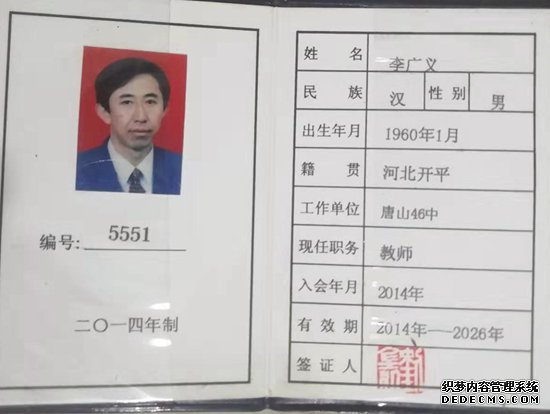 编号: 5551
二〇一四年制
姓名 李广义
民族 汉 性别 男
出生年月 1960年1月
籍贯 河北开平
工作单位 唐山46中
现任职务 教师
入会年月 2014年
有效期 2014年——2026年
签证人
织梦内容管理系统
DEDECMS.COM